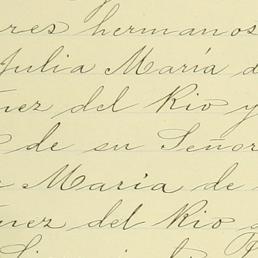 res hermanos
Julia María d
nez del Rio y
de su Señor
María de
nez del Rio